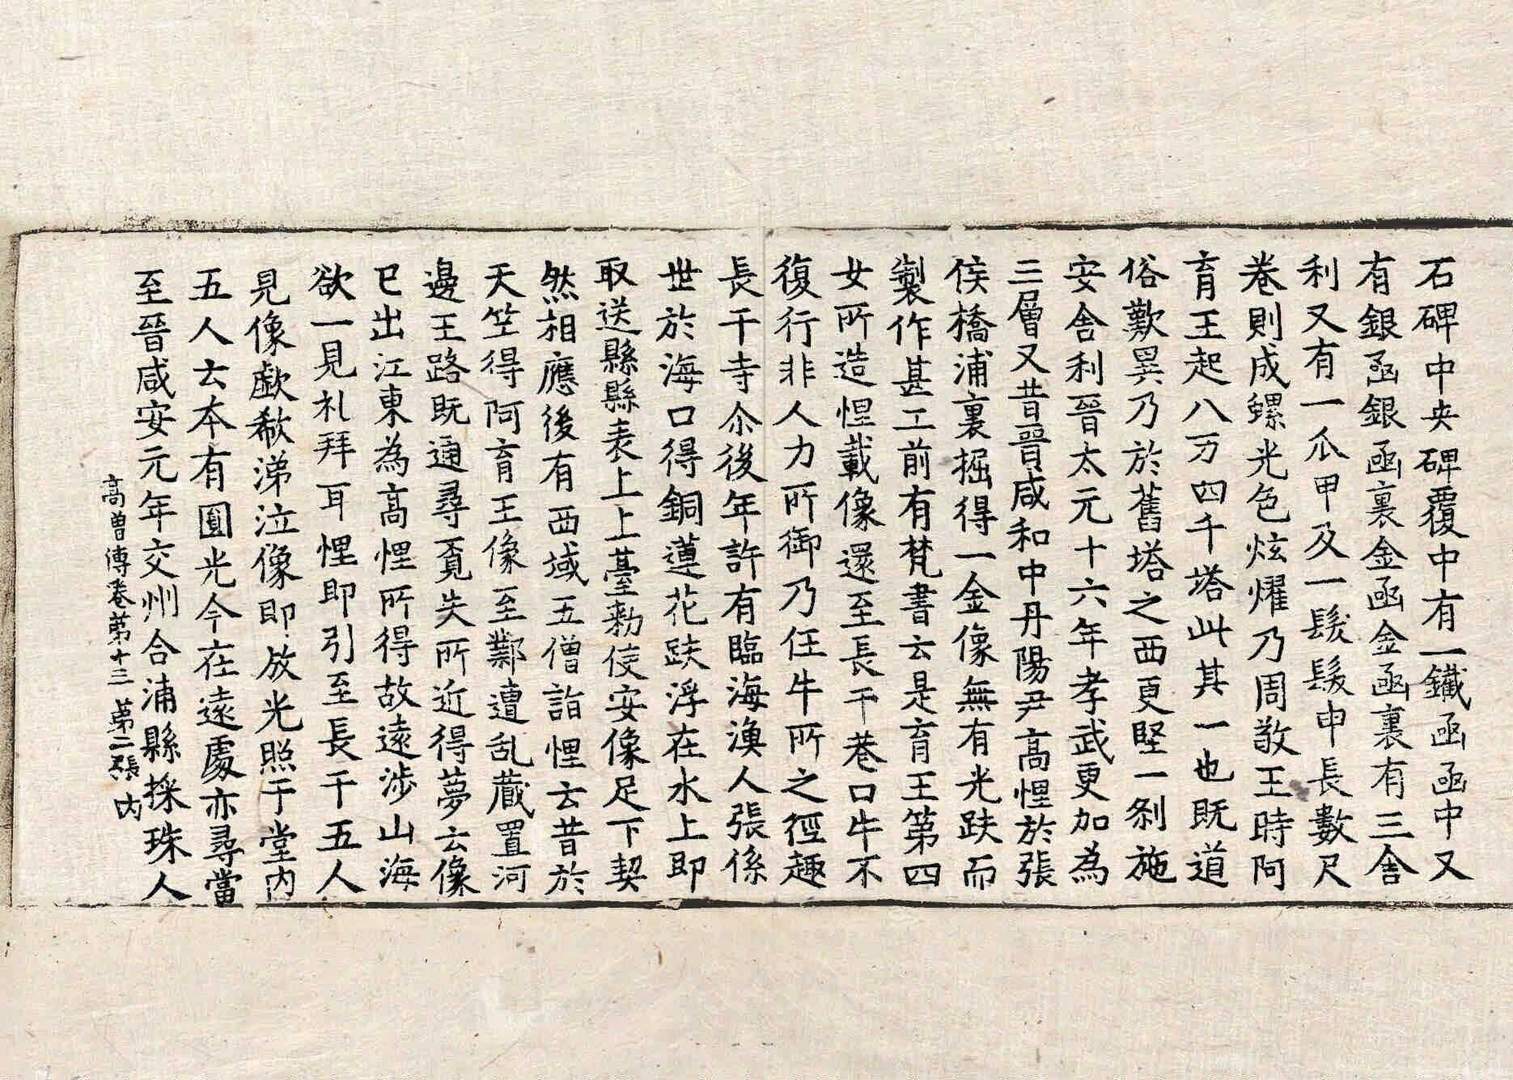 石碑中央碑覆中有一鐵函函中又
有銀函銀函裏金函金函裏有三舍
利又有一爪甲及一髮髮申長數尺
卷則成螺光色炫燿乃周敬王時阿
育王起八万四千塔此其一也既道
俗歎異乃於舊塔之西更竪一刹施
安舍利晉太元十六年孝武更加為
三層又昔晉咸和中丹陽尹高悝於張
侯橋浦裏掘得一金像無有光趺而
製作甚工前有梵書云是育王第四
女所造悝載像還至長干巷口牛不
復行非人力所御乃任牛所之徑趣
長干寺尒後年許有臨海漁人張係
世於海口得銅蓮花趺浮在水上即
取送縣縣表上上臺勑使安像足下契
然相應後有西域五僧詣悝云昔於
天竺得阿育王像至鄴遭乱藏置河
邊王路既通尋覓失所近得夢云像
已出江東為高悝所得故遠涉山海
欲一見礼拜耳悝即引至長干五人
見像歔欷涕泣像即放光照于堂內
五人云夲有圎光今在遠處亦尋當
至晉咸安元年交州合浦縣採珠人
高曾傳卷第十三 第二張 內